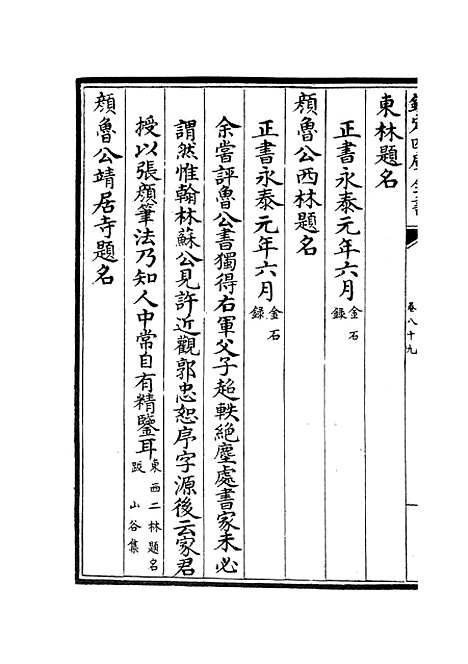 欽定四庫全書
卷八十九
東林題名
正書永泰元年六月金石錄
顏魯公西林題名
正書永泰元年六月金石錄
余嘗評魯公書獨得右軍父子超軼絶塵處書家未必
謂然惟翰林蘇公見許近觀郭忠恕序字源後云家君
授以張顏筆法乃知人中常自有精鑒耳東西二林題名跋山谷集
顏魯公靖居寺題名